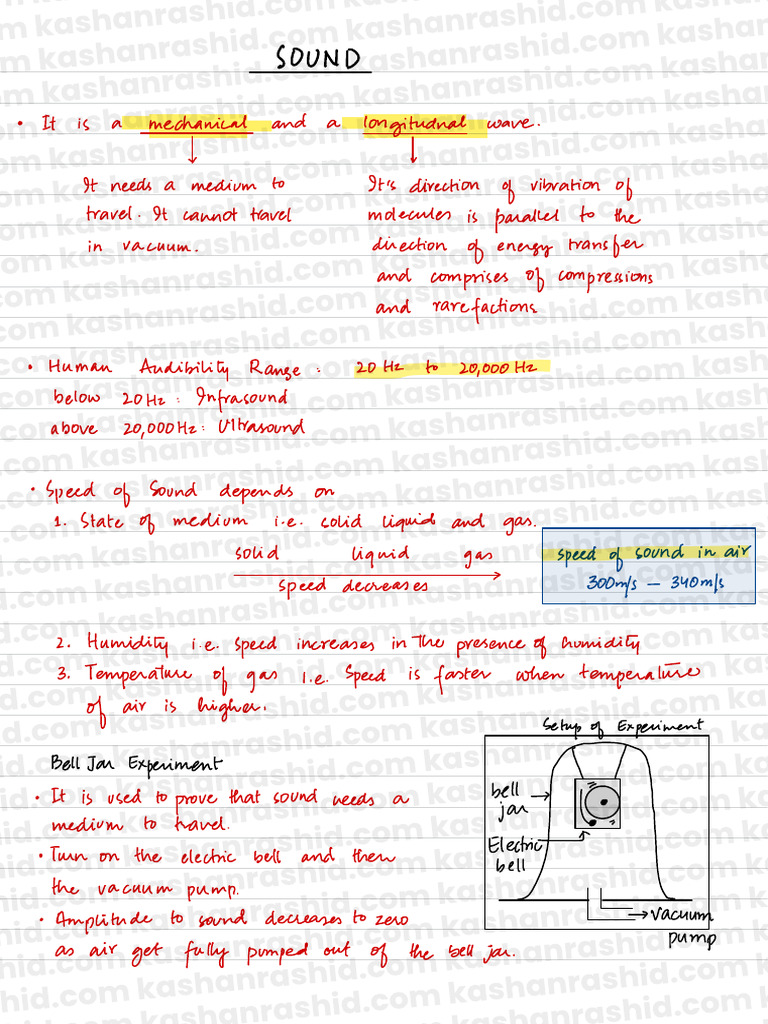 SOUND
• It is a mechanical and a longitudnal wave.
It needs a medium to
travel. It cannot travel
in vacuum.
It's direction of vibration of
molecules is parallel to the
direction of energy transfer
and comprises of compressions
and rarefactions
• Human Audibility Range : 20 Hz to 20,000 Hz
below 20 Hz : Infrasound
above 20,000 Hz : Ultrasound
• Speed of Sound depends on
1. State of medium i.e. solid liquid and gas.
solid liquid gas
speed decreases
speed of sound in air
300m/s — 340m/s
2. Humidity i.e. speed increases in the presence of humidity
3. Temperature of gas i.e. Speed is faster when temperature
of air is higher.
Bell Jar Experiment
• It is used to prove that sound needs a
medium to travel.
• Turn on the electric bell and then
the vacuum pump.
• Amplitude to sound decreases to zero
as air get fully pumped out of the bell jar.
Setup of Experiment
bell
jar
Electric
bell
vacuum
pump
kashanrashid.com